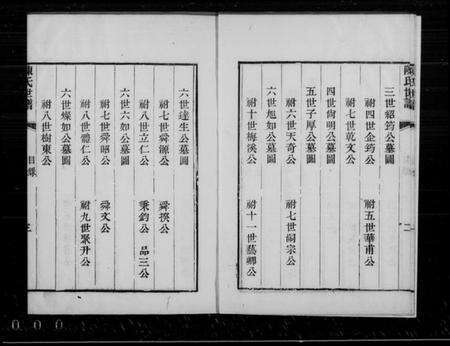 陳氏世譜
二
三世紹筠公墓圖
祔四世企筠公 祔五世華甫公
祔七世乾文公
四世尚明公墓圖
五世子厚公墓圖
祔六世天奇公 祔七世嗣宗公
六世旭如公墓圖
祔十世梅溪公 祔十一世藝卿公
六世達生公墓圖
祔七世舜源公 舜撰公
祔八世立仁公 秉鈞公 品三公
六世六如公墓圖
祔七世舜昭公 舜文公
祔八世體仁公 祔九世聚升公
六世燦如公墓圖
祔八世樹東公
陳氏世譜
目錄
三
000